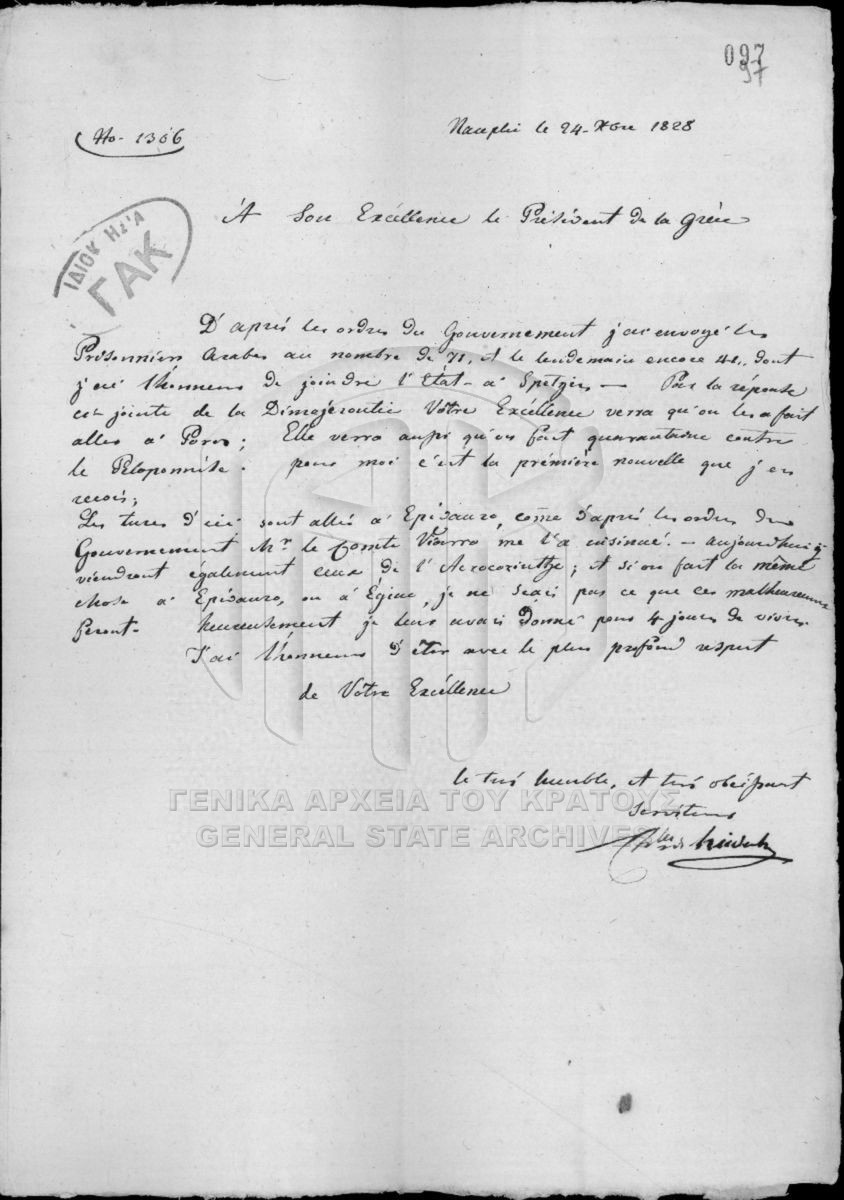 097
97
No- 1306
Nauplie le 24- Xbre 1828
ΙΔΙΟΚΤΗΣΙΑ
ΓΑΚ
A Son Excellence le Président de la Grèce
D'après les ordres du Gouvernement j'ai envoyé les
Prisonniers Arabes au nombre de 71, et le lendemain encore 41, dont
j'ai l'honneur de joindre l'état- à Spetzies - Par la réponse
ci-jointe de la Dimojérontie Votre Excellence verra qu'on les a fait
aller à Poros; Elle verra aussi qu'on fait quarantaine contre
le Péloponnèse. pour moi c'est la première nouvelle que j'en
recois;
Les turcs d'ici sont allés à Epidauro, come d'après les ordres du
Gouvernement Mr. le Comte Viarro me l'a insinué. - aujourdhui
viendront également ceux de l'Acrocorinthe; et si on fait la même
chose à Epidauro, ou à Égine, je ne sais pas ce que ces malheureux
feront- heureusement je leur avais donné pour 4 jours de vivres.
J'ai l'honneur d'être avec le plus profond respect
de Votre Excellence
le très humble, et très obéissant
Serviteur
ΓΕΝΙΚΑ ΑΡΧΕΙΑ ΤΟΥ ΚΡΑΤΟΥΣ
GENERAL STATE ARCHIVES